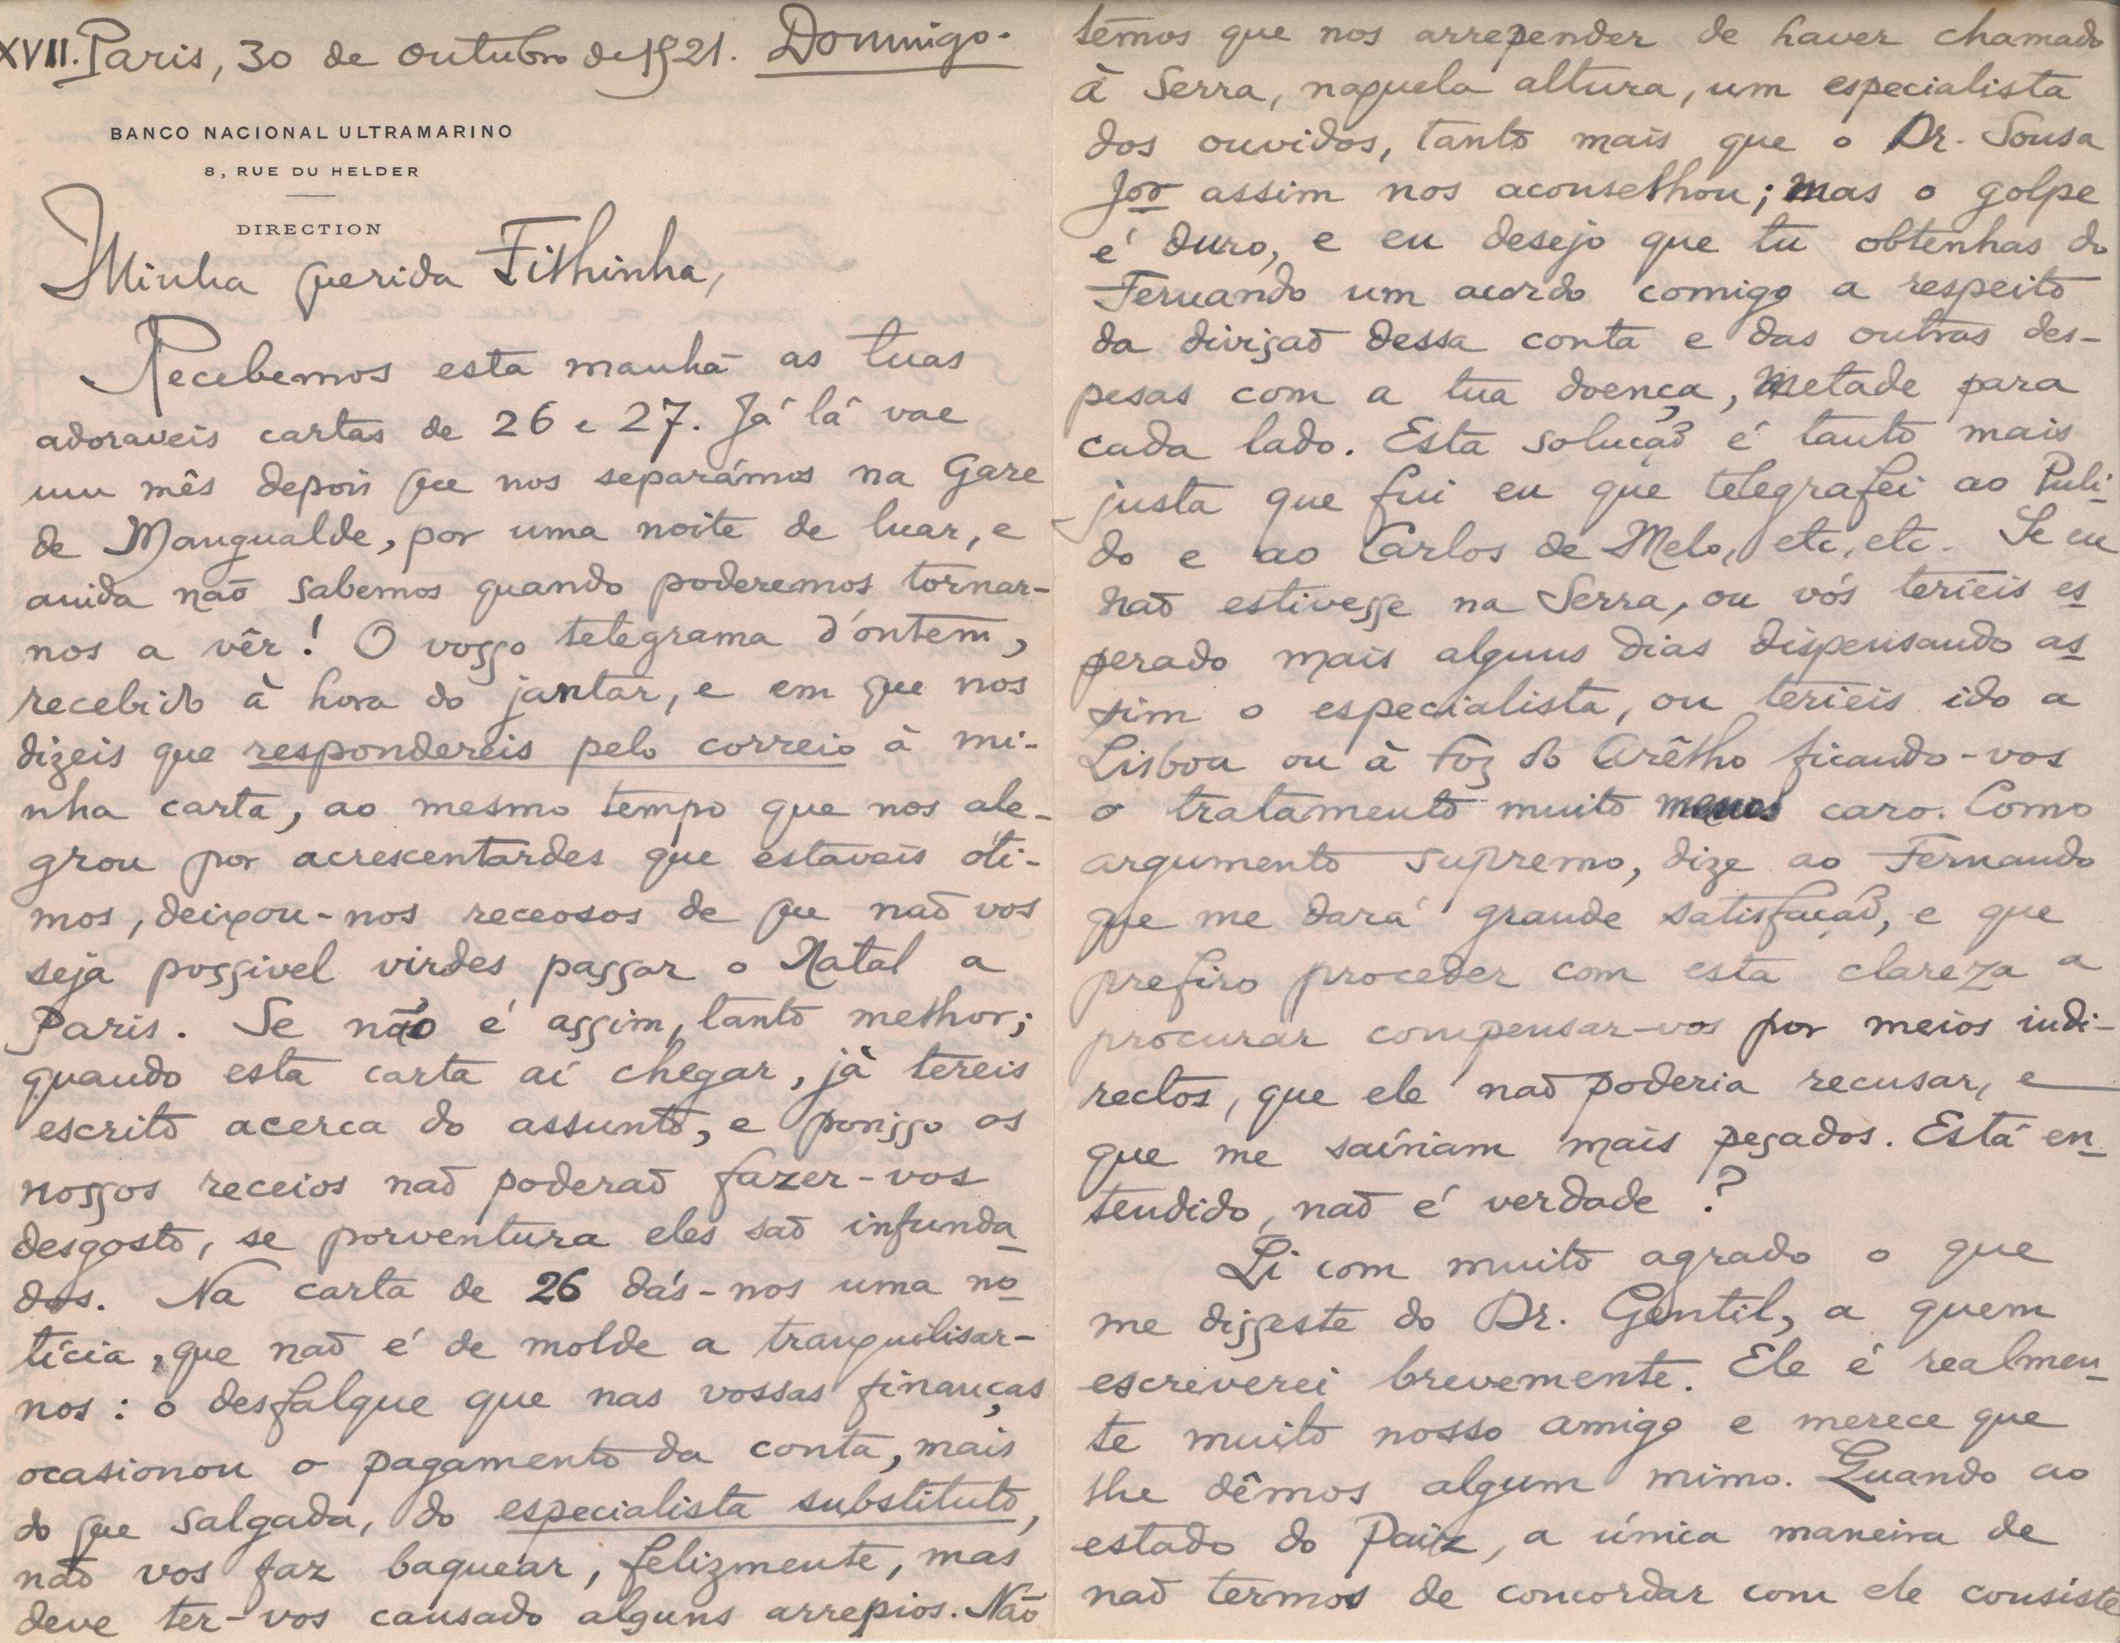 XVII. Paris, 30 de Outubro de 1921. Domingo.
BANCO NACIONAL ULTRAMARINO
8, RUE DU HELDER
DIRECTION
Minha querida Filhinha,
Recebemos esta manhã as tuas
adoraveis cartas de 26 e 27. Já lá vae
um mês depois que nos separámos na Gare
de Mangualde, por uma noite de luar, e
ainda não sabemos quando poderemos tornar-
nos a vêr! O vosso telegrama d'ontem,
recebido à hora do jantar, e em que nos
dizeis que respondereis pelo correio à mi-
nha carta, ao mesmo tempo que nos ale-
grou por acrescentardes que estaveis óti-
mos, deixou-nos receosos de que não vos
seja possivel virdes passar o Natal a
Paris. Se não é assim, tanto melhor;
quando esta carta aí chegar, já tereis
escrito acerca do assunto, e porisso os
nossos receios não poderão fazer-vos
desgosto, se porventura eles são infunda-
dos. Na carta de 26 dás-nos uma no-
tícia, que não é de molde a tranquilisar-
nos: o desfalque que nas vossas finanças
ocasionou o pagamento da conta, mais
do que salgada, do especialista substituto,
não vos faz baquear, felizmente, mas
deve ter-vos causado alguns arrepios. Não
temos que nos arrepender de haver chamado
à Serra, naquela altura, um especialista
dos ouvidos, tanto mais que o Dr. Sousa
Jor assim nos aconselhou; mas o golpe
é duro, e eu desejo que tu obtenhas do
Fernando um acordo comigo a respeito
da divisão dessa conta e das outras des-
pesas com a tua doença, metade para
cada lado. Esta solução é tanto mais
justa que fui eu que telegrafei ao Puli-
do e ao Carlos de Melo, etc, etc. Se eu
não estivesse na Serra, ou vós terieis es-
perado mais alguns dias dispensando as-
sim o especialista, ou terieis ido a
Lisboa ou à Foz do Arêlho ficando-vos
o tratamento muito menos caro. Como
argumento supremo, dize ao Fernando
que me dará grande satisfação, e que
prefiro proceder com esta clareza a
procurar compensar-vos por meios indi-
rectos, que ele não poderia recusar, e
que me sairiam mais pesados. Está en-
tendido, não é verdade?
Li com muito agrado o que
me disseste do Dr. Gentil, a quem
escreverei brevemente. Ele é realmen-
te muito nosso amigo e merece que
lhe dêmos algum mimo. Quando ao
estado do Paiz, a única maneira de
não termos de concordar com ele consiste